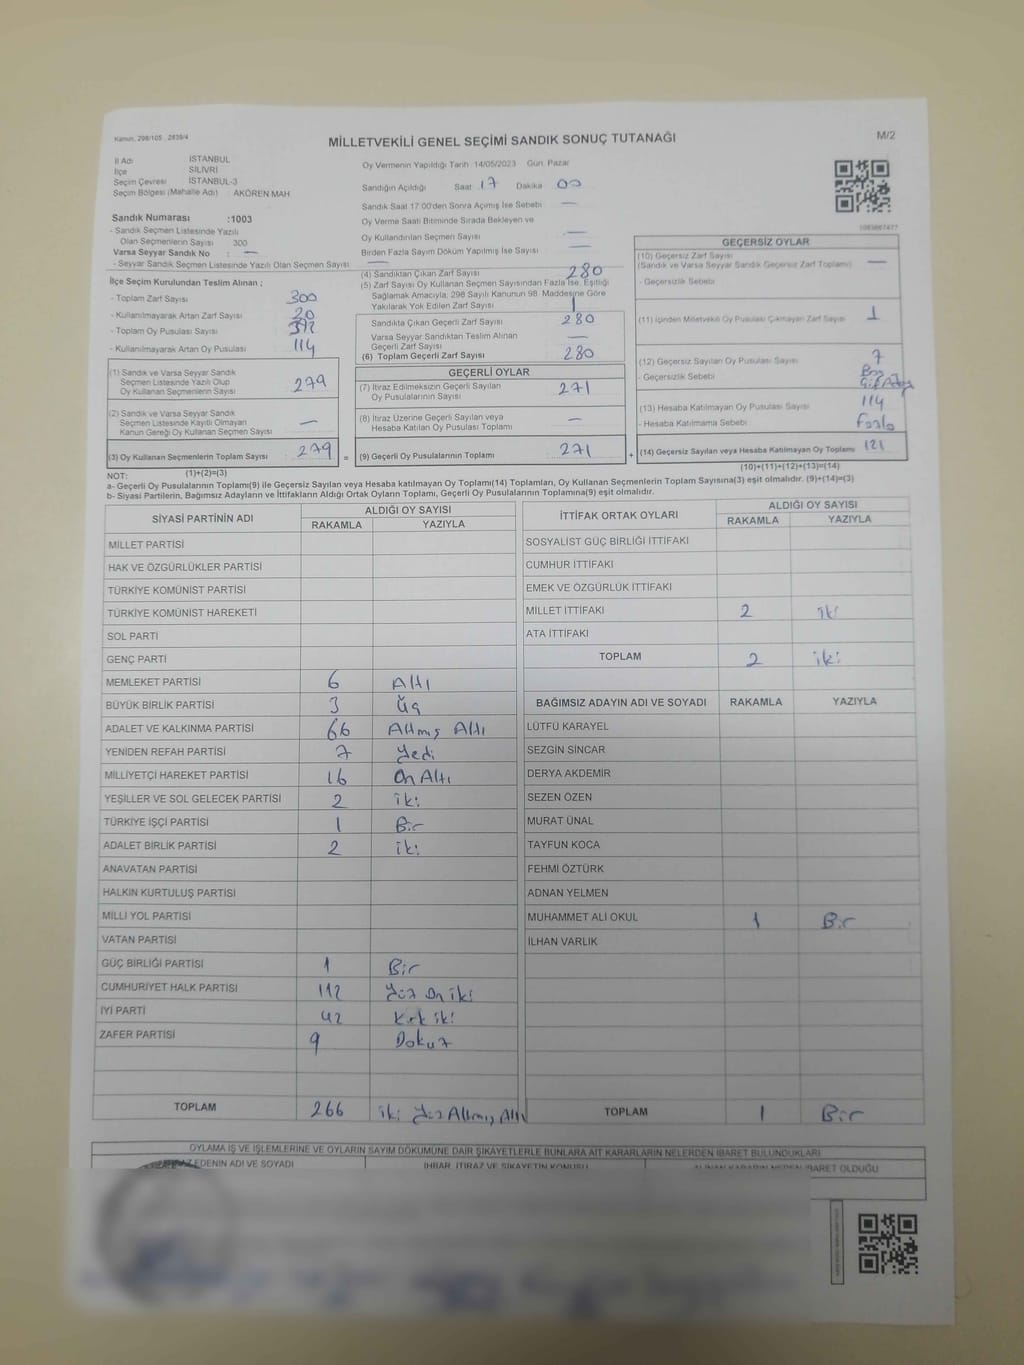 Kanun, 298/105 , 2839/4
MİLLETVEKİLİ GENEL SEÇİMİ SANDIK SONUÇ TUTANAĞI
M/2
İl Adı İSTANBUL
İlçe SİLİVRİ
Seçim Çevresi İSTANBUL-3
Seçim Bölgesi (Mahalle Adı) AKÖREN MAH
Oy Vermenin Yapıldığı Tarih 14/05/2023 Gün Pazar
Sandığın Açıldığı Saat 17 Dakika 00
Sandık Saat 17:00'den Sonra Açımış İse Sebebi —
Oy Verme Saati Bitiminde Sırada Bekleyen ve
Oy Kullandırılan Seçmen Sayısı —
Birden Fazla Sayım Döküm Yapılmış İse Sayısı —
Sandık Numarası :1003
- Sandık Seçmen Listesinde Yazılı
Olan Seçmenlerin Sayısı 300
Varsa Seyyar Sandık No : —
- Seyyar Sandık Seçmen Listesinde Yazılı Olan Seçmen Sayısı —
İlçe Seçim Kurulundan Teslim Alınan ;
- Toplam Zarf Sayısı 300
- Kullanılmayarak Artan Zarf Sayısı 20
- Toplam Oy Pusulası Sayısı
- Kullanılmayarak Artan Oy Pusulası 114
(1) Sandık ve Varsa Seyyar Sandık
Seçmen Listesinde Yazılı Olup
Oy Kullanan Seçmenlerin Sayısı 279
(2) Sandık ve Varsa Seyyar Sandık
Seçmen Listesinde Kayıtlı Olmayan
Kanun Gereği Oy Kullanan Seçmen Sayısı —
(3) Oy Kullanan Seçmenlerin Toplam Sayısı : 279
(4) Sandıktan Çıkan Zarf Sayısı 280
(5) Zarf Sayısı Oy Kullanan Seçmen Sayısından Fazla İse, Eşitliği
Sağlamak Amacıyla, 298 Sayılı Kanunun 98. Maddesine Göre
Yakılarak Yok Edilen Zarf Sayısı 1
Sandıkta Çıkan Geçerli Zarf Sayısı 280
Varsa Seyyar Sandıktan Teslim Alınan
Geçerli Zarf Sayısı —
(6) Toplam Geçerli Zarf Sayısı 280
GEÇERLİ OYLAR
(7) İtiraz Edilmeksizin Geçerli Sayılan
Oy Pusulasının Sayısı 271
(8) İtiraz Üzerine Geçerli Sayılan veya
Hesaba Katılan Oy Pusulası Toplamı —
= (9) Geçerli Oy Pusulalarının Toplamı 271 +
GEÇERSİZ OYLAR
(10) Geçersiz Zarf Sayısı
(Sandık ve Varsa Seyyar Sandık Geçersiz Zarf Toplamı) —
- Geçersizlik Sebebi
(11) İçinden Milletvekili Oy Pusulası Çıkmayan Zarf Sayısı 1
(12) Geçersiz Sayılan Oy Pusulası Sayısı 7
- Geçersizlik Sebebi
(13) Hesaba Katılmayan Oy Pusulası Sayısı 114
- Hesaba Katılmama Sebebi Fazla
(14) Geçersiz Sayılan veya Hesaba Katılmayan Oy Toplamı 121
NOT: (1)+(2)=(3)
(10)+(11)+(12)+(13)=(14)
a- Geçerli Oy Pusulalarının Toplamı(9) ile Geçersiz Sayılan veya Hesaba katılmayan Oy Toplamı(14) Toplamları, Oy Kullanan Seçmenlerin Toplam Sayısına(3) eşit olmalıdır. (9)+(14)=(3)
b- Siyasi Partilerin, Bağımsız Adayların ve İttifakların Aldığı Ortak Oyların Toplamı, Geçerli Oy Pusulalarının Toplamına(9) eşit olmalıdır.
SİYASİ PARTİNİN ADI ALDIĞI OY SAYISI
RAKAMLA YAZIYLA
MİLLET PARTİSİ
HAK VE ÖZGÜRLÜKLER PARTİSİ
TÜRKİYE KOMÜNİST PARTİSİ
TÜRKİYE KOMÜNİST HAREKETİ
SOL PARTİ
GENÇ PARTİ
MEMLEKET PARTİSİ 6 Altı
BÜYÜK BİRLİK PARTİSİ 3 Üç
ADALET VE KALKINMA PARTİSİ 66 Altmış Altı
YENİDEN REFAH PARTİSİ 7 Yedi
MİLLİYETÇİ HAREKET PARTİSİ 16 On Altı
YEŞİLLER VE SOL GELECEK PARTİSİ 2 iki
TÜRKİYE İŞÇİ PARTİSİ 1 Bir
ADALET BİRLİK PARTİSİ 2 iki
ANAVATAN PARTİSİ
HALKIN KURTULUŞ PARTİSİ
MİLLİ YOL PARTİSİ
VATAN PARTİSİ
GÜÇ BİRLİĞİ PARTİSİ 1 Bir
CUMHURİYET HALK PARTİSİ 112 Yüz On iki
İYİ PARTİ 42 Kırk iki
ZAFER PARTİSİ 9 Dokuz
TOPLAM 266 iki Yüz Altmış Altı
İTTİFAK ORTAK OYLARI ALDIĞI OY SAYISI
RAKAMLA YAZIYLA
SOSYALİST GÜÇ BİRLİĞİ İTTİFAKI
CUMHUR İTTİFAKI
EMEK VE ÖZGÜRLÜK İTTİFAKI
MİLLET İTTİFAKI 2 iki
ATA İTTİFAKI
TOPLAM 2 iki
BAĞIMSIZ ADAYIN ADI VE SOYADI RAKAMLA YAZIYLA
LÜTFÜ KARAYEL
SEZGİN SİNCAR
DERYA AKDEMİR
SEZEN ÖZEN
MURAT ÜNAL
TAYFUN KOCA
FEHMİ ÖZTÜRK
ADNAN YELMEN
MUHAMMET ALİ OKUL 1 Bir
İLHAN VARLIK
TOPLAM 1 Bir
OYLAMA İŞ VE İŞLEMLERİNE VE OYLARIN SAYIM DÖKÜMÜNE DAİR ŞİKAYETLERLE BUNLARA AİT KARARLARIN NELERDEN İBARET BULUNDUKLARI
EDENİN ADI VE SOYADI İHBAR, İTİRAZ VE ŞİKAYETİN KONUSU ALINAN KARARIN NEDEN İBARET OLDUĞU